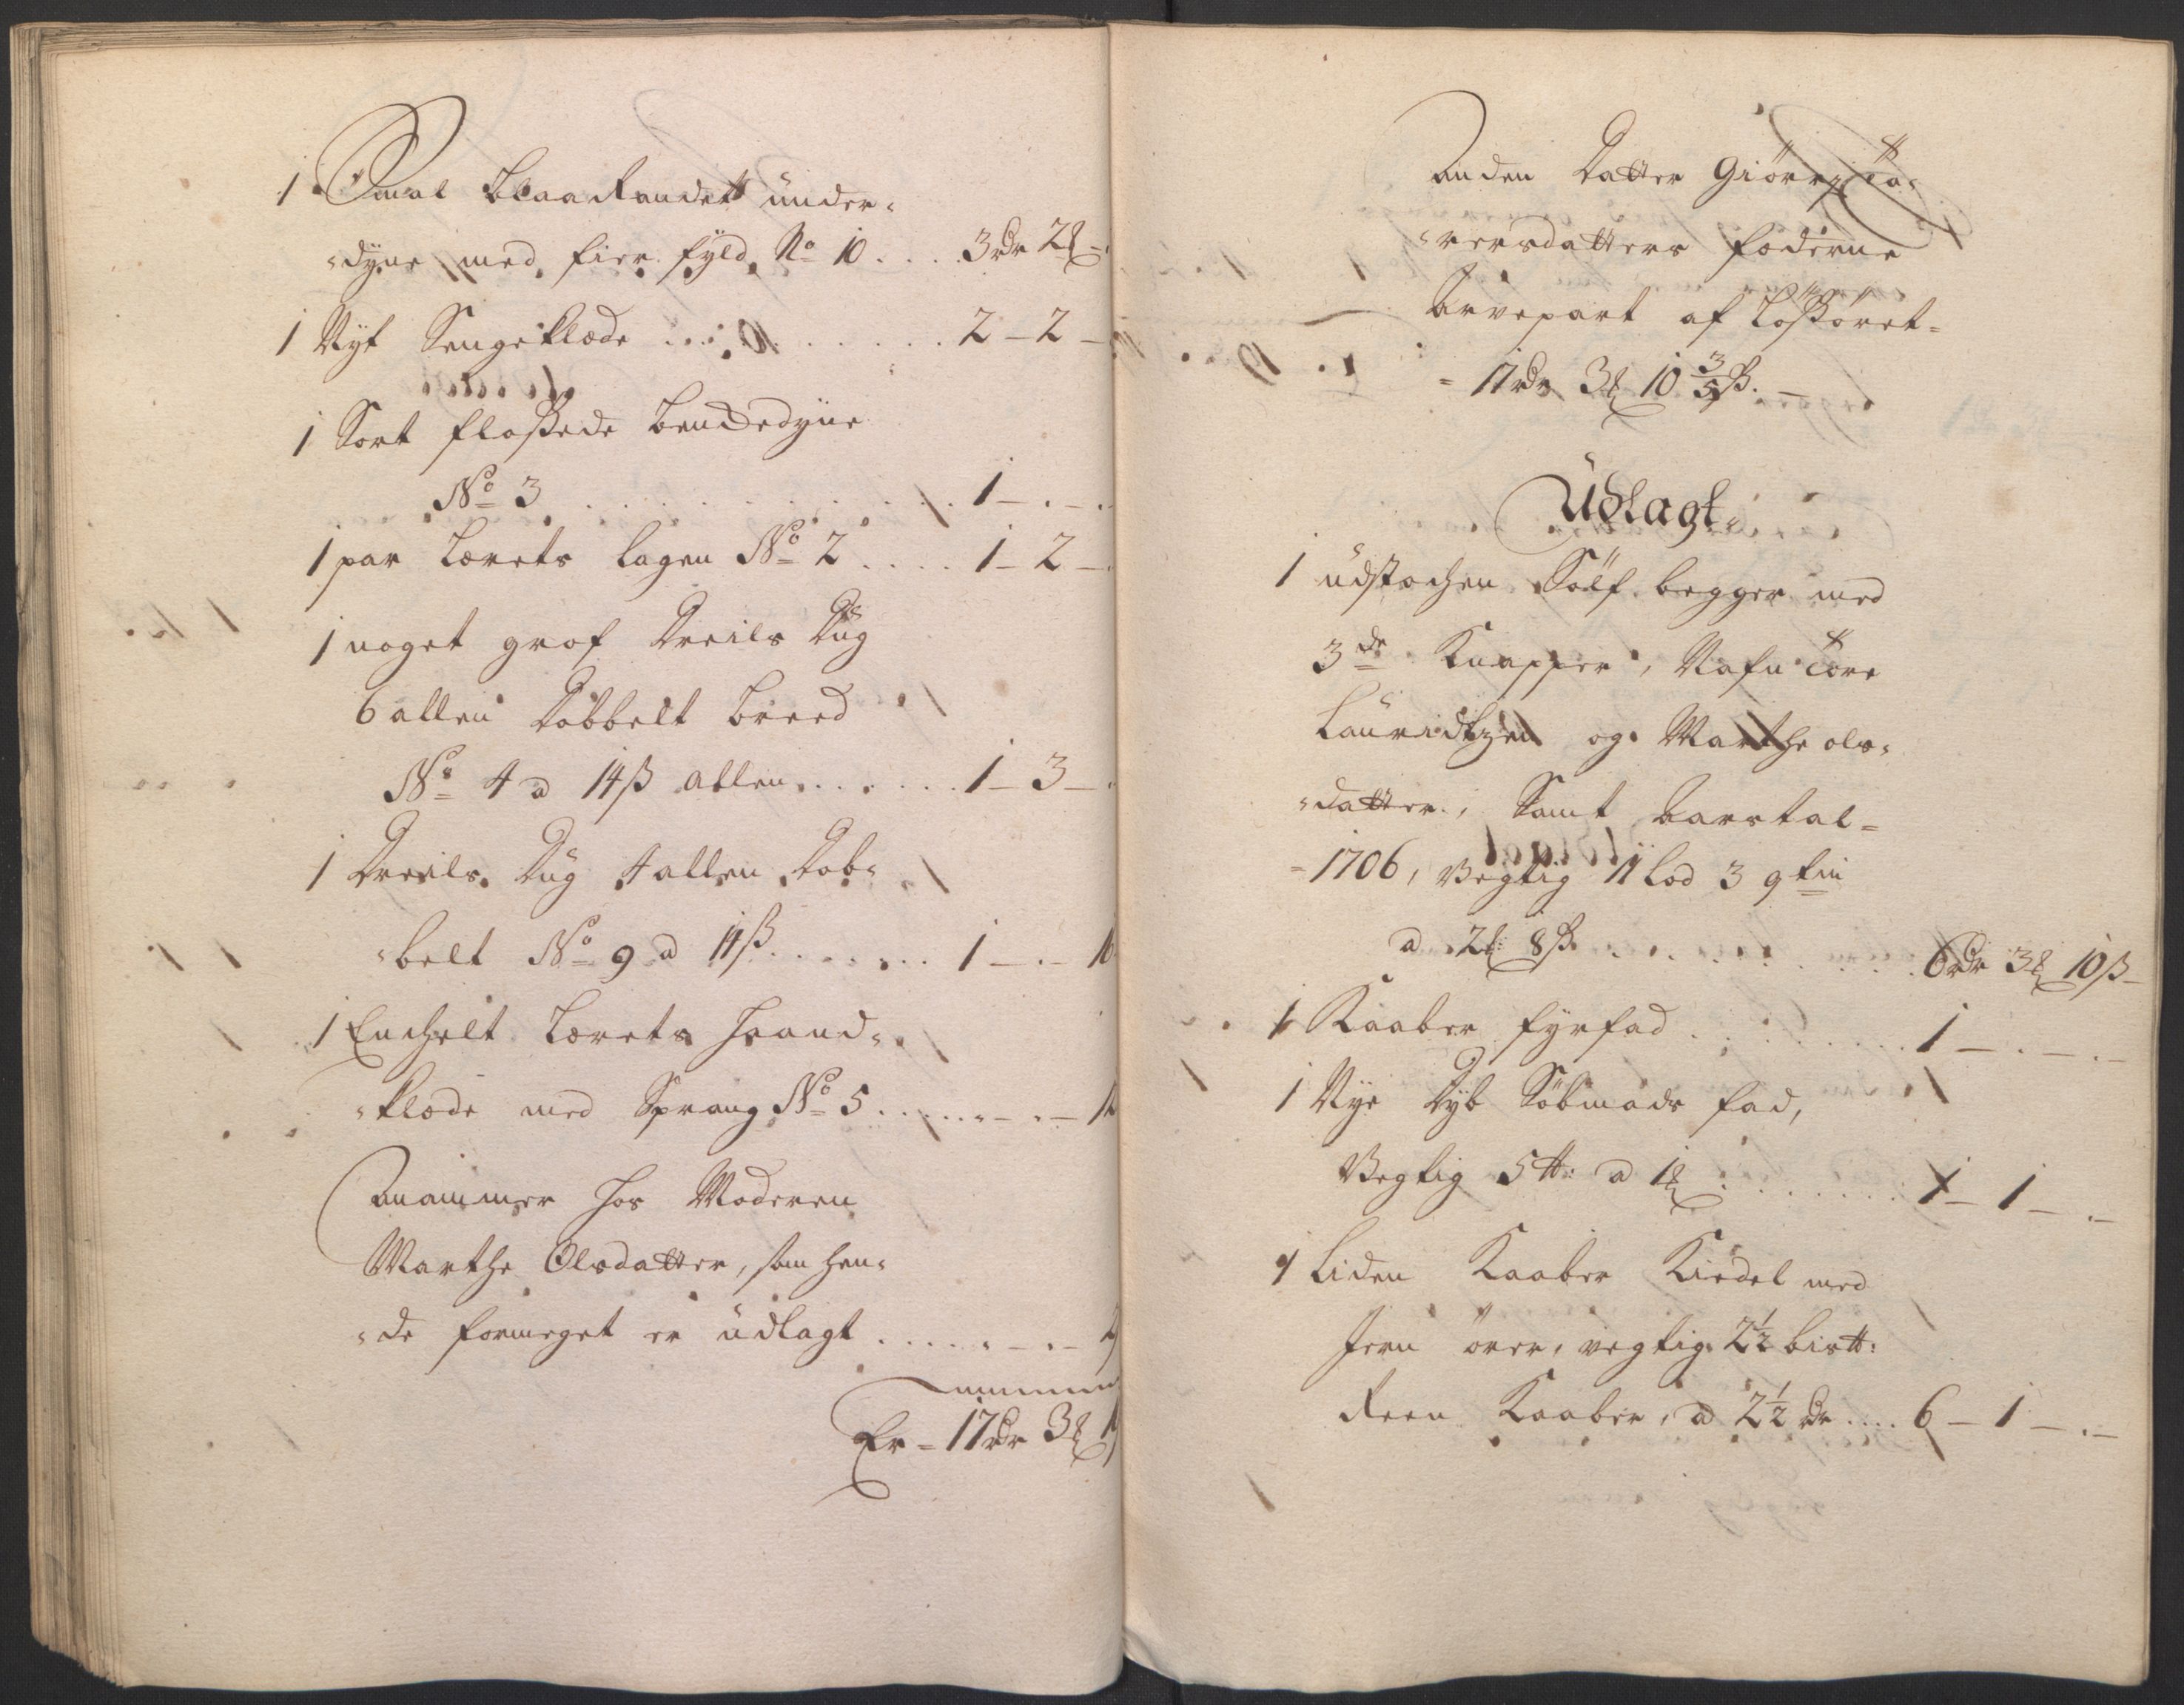 1 Smal blaaRandet under-
-dÿne med fier fÿld No 10 .... 3rdr 2
1 Nÿt Sengeklæde ......... 2 - 2 -
1 Sort flossede benckedÿne
No 3 ............ 1 - . -
1 par Lærrets lagen No 2 .... 1 - 2 -
1 noget grof Dreils Dug
6 allen Dobbelt breed
No 4 a 14 ß allen ...... 1 - 3 -
1 Dreils Dug 4 allen Dob-
-belt No 9 a ß ....... 1 - . - 16
1 Enchelt Lærrets Haand-
-klæde med Sprang No 5 .....
Annammer hos Moderen
Marthe Olsdatter, som hen-
-de formeget er udlagt .....
Er = 17rdr 3
Anden Datter Giøri To-
-rersdatters fæderne
Arvepart af Løssøret =
= 17rdr 3 10 3/5 ß. -
Udlagt.
1 udstochen Sølf begger med
3de Knapper, Nafn Tore
Lauridtzen og Marthe ols-
-datter, Samt aarstal =
= 1706, Vegtig 11 Lod 3 qtin
a 2 8 ß .......... 6rdr 3 10 ß -
1 Kaaber fÿrfad ........ 1 - . - . -
1 Nÿe Dÿb Søbmads fad,
Vegtig 5 tt: a 1 ........ 1 - 1 - . -
1 Liden Kaaber Kiedel med
Jern ører, vegtig 2½ bistt:
Reen Kaaber, a 2½ dr .... 6 - 1 - . -